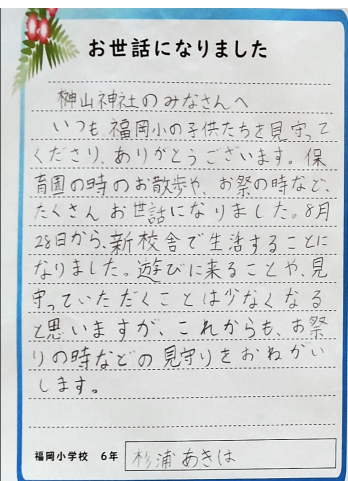 お世話になりました
榊山神社のみなさんへ
いつも、福岡小の子供たちを見守って
くださり、ありがとうございます。保
育園の時のお散歩や、お祭の時など、
たくさんお世話になりました。8月
28日から、新校舎で生活することに
なりました。遊びに来ることや、見
守っていただくことは少なくなる
と思いますが、これからも、お祭
りの時などの見守りをおねがい
します。
福岡小学校 6年 杉浦あきは